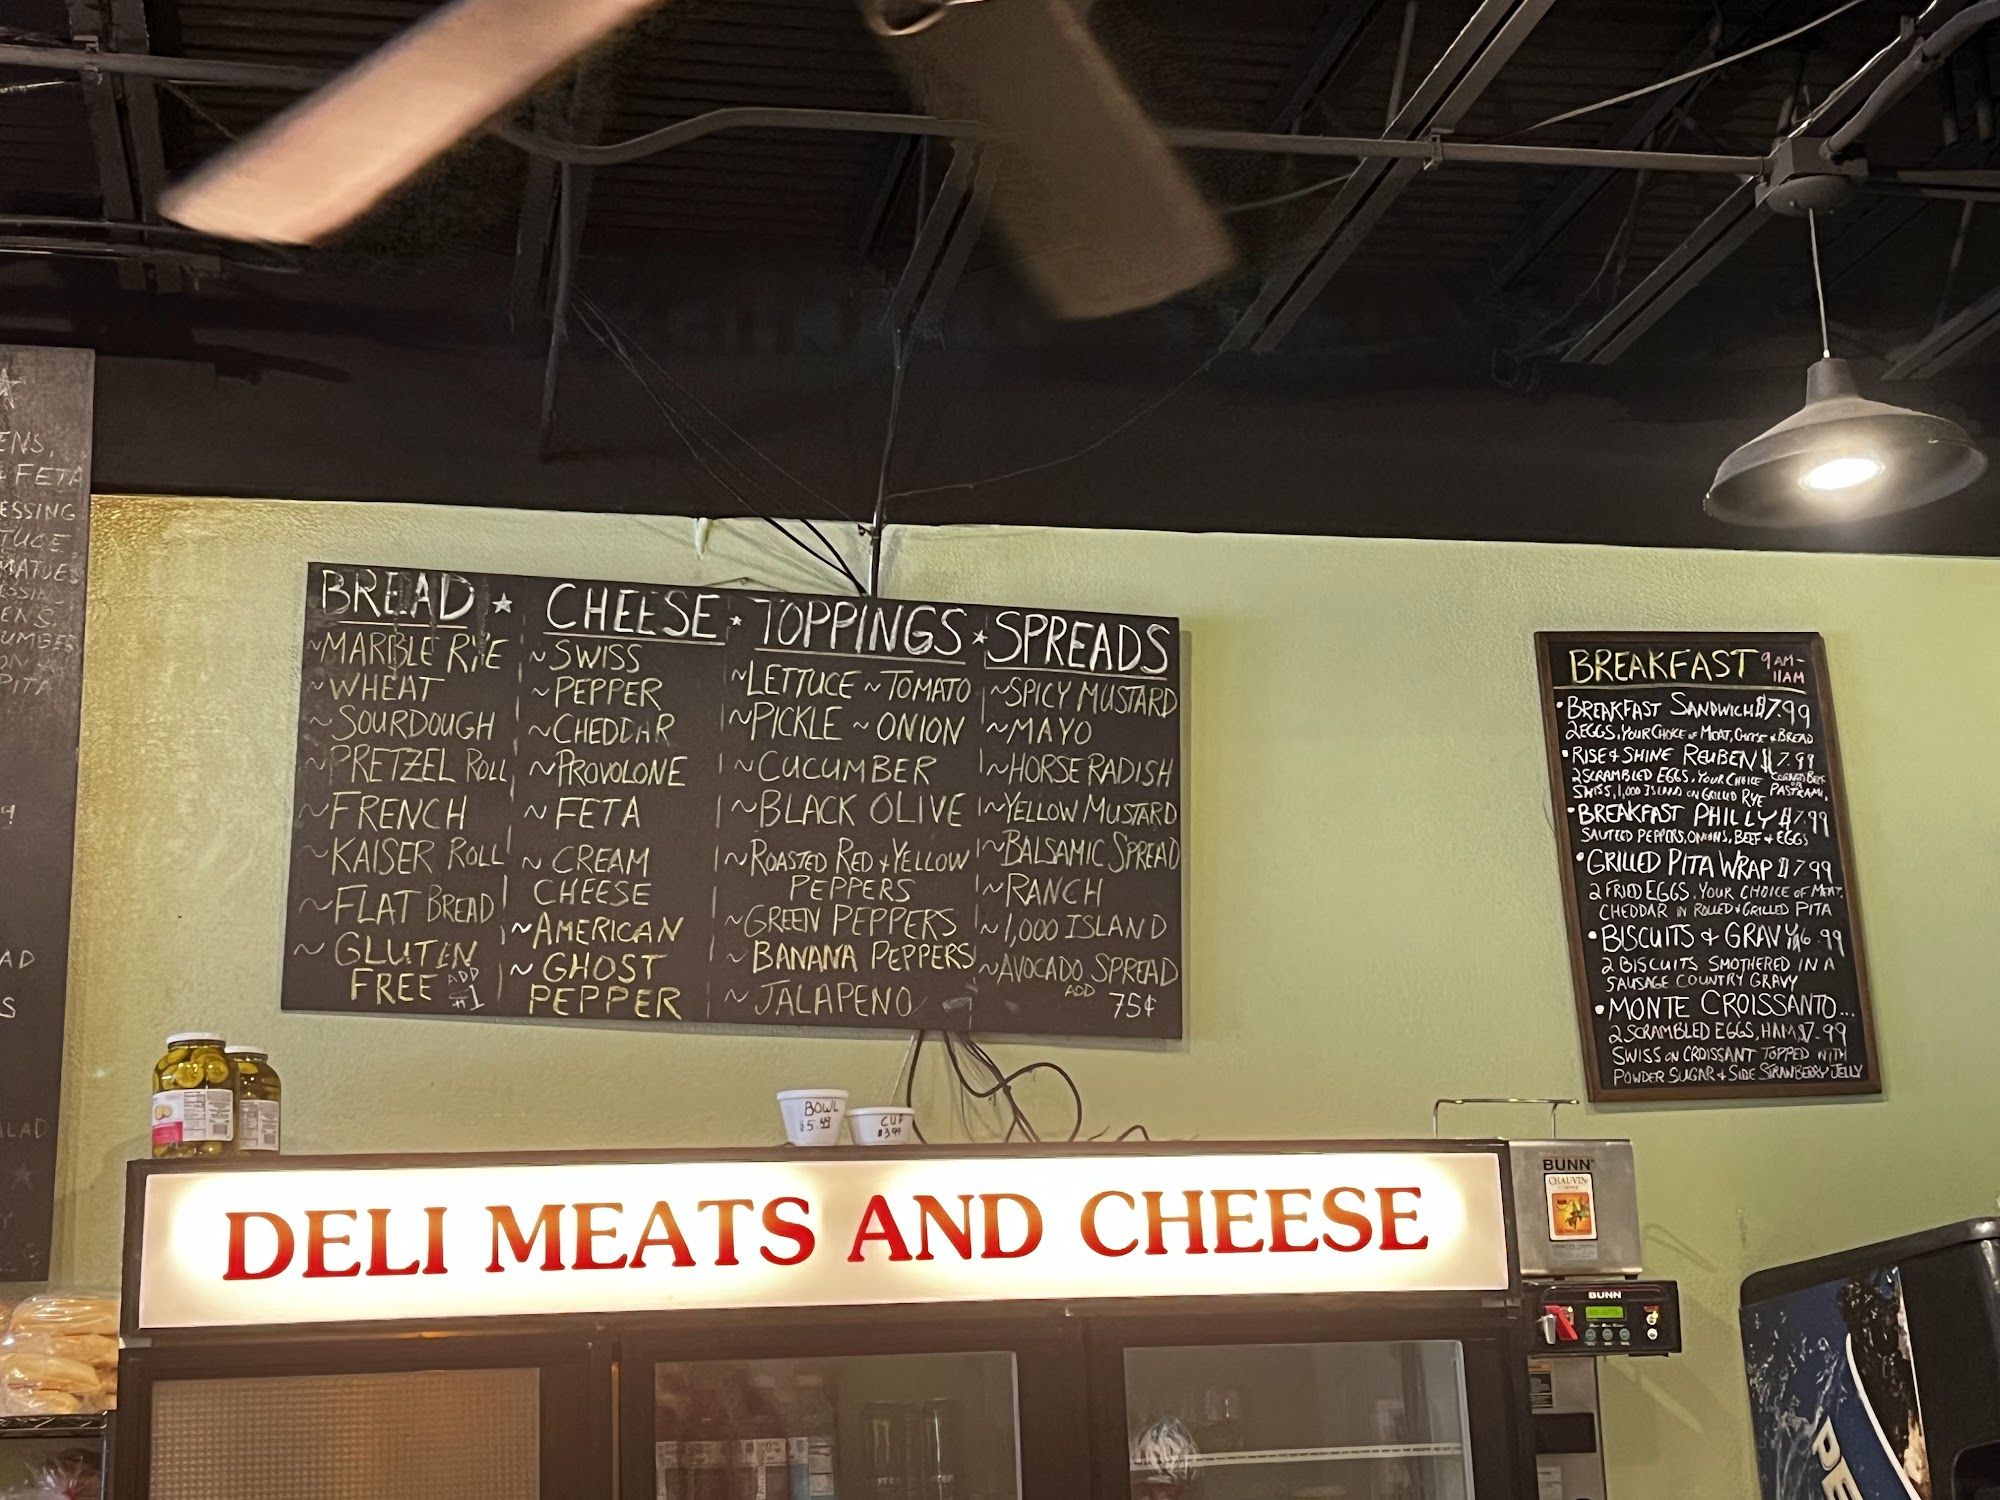 ENS,
FETA
ESSING
TUCE
MATOES
ENS.
UMBER
ON
PITA
AD
S
ALAD
Y
BREAD
~MARBLE RYE
~WHEAT
~SOURDOUGH
~PRETZEL ROLL
~FRENCH
~KAISER ROLL
~FLAT BREAD
~GLUTEN
FREE ADD
$1
CHEESE
~SWISS
~PEPPER
~CHEDDAR
~PROVOLONE
~FETA
~CREAM
CHEESE
~AMERICAN
~GHOST
PEPPER
TOPPINGS
~LETTUCE ~TOMATO
~PICKLE ~ONION
~CUCUMBER
~BLACK OLIVE
~ROASTED RED + YELLOW
PEPPERS
~GREEN PEPPERS
~BANANA PEPPERS
~JALAPENO
SPREADS
~SPICY MUSTARD
~MAYO
~HORSE RADISH
~YELLOW MUSTARD
~BALSAMIC SPREAD
~RANCH
~1,000 ISLAND
~AVOCADO SPREAD
ADD 75¢
BREAKFAST 9AM-
11AM
•BREAKFAST SANDWICH $7.99
2 EGGS, YOUR CHOICE OF MEAT, CHEESE + BREAD
•RISE + SHINE REUBEN $7.99
2 SCRAMBLED EGGS, YOUR CHOICE CORNED BEEF OR PASTRAMI,
SWISS, 1,000 ISLAND ON GRILLED RYE
•BREAKFAST PHILLY $7.99
SAUTEED PEPPERS, ONIONS, BEEF + EGGS
•GRILLED PITA WRAP $7.99
2 FRIED EGGS, YOUR CHOICE OF MEAT,
CHEDDAR IN ROLLED + GRILLED PITA
•BISCUITS + GRAVY $6.99
2 BISCUITS SMOTHERED IN A
SAUSAGE COUNTRY GRAVY
•MONTE CROISSANTO...
2 SCRAMBLED EGGS, HAM $7.99
SWISS ON CROISSANT TOPPED WITH
POWDER SUGAR + SIDE STRAWBERRY JELLY
BOWL
$5.99
CUP
$3.99
DELI MEATS AND CHEESE
BUNN
CHAUVIN
BUNN
PE